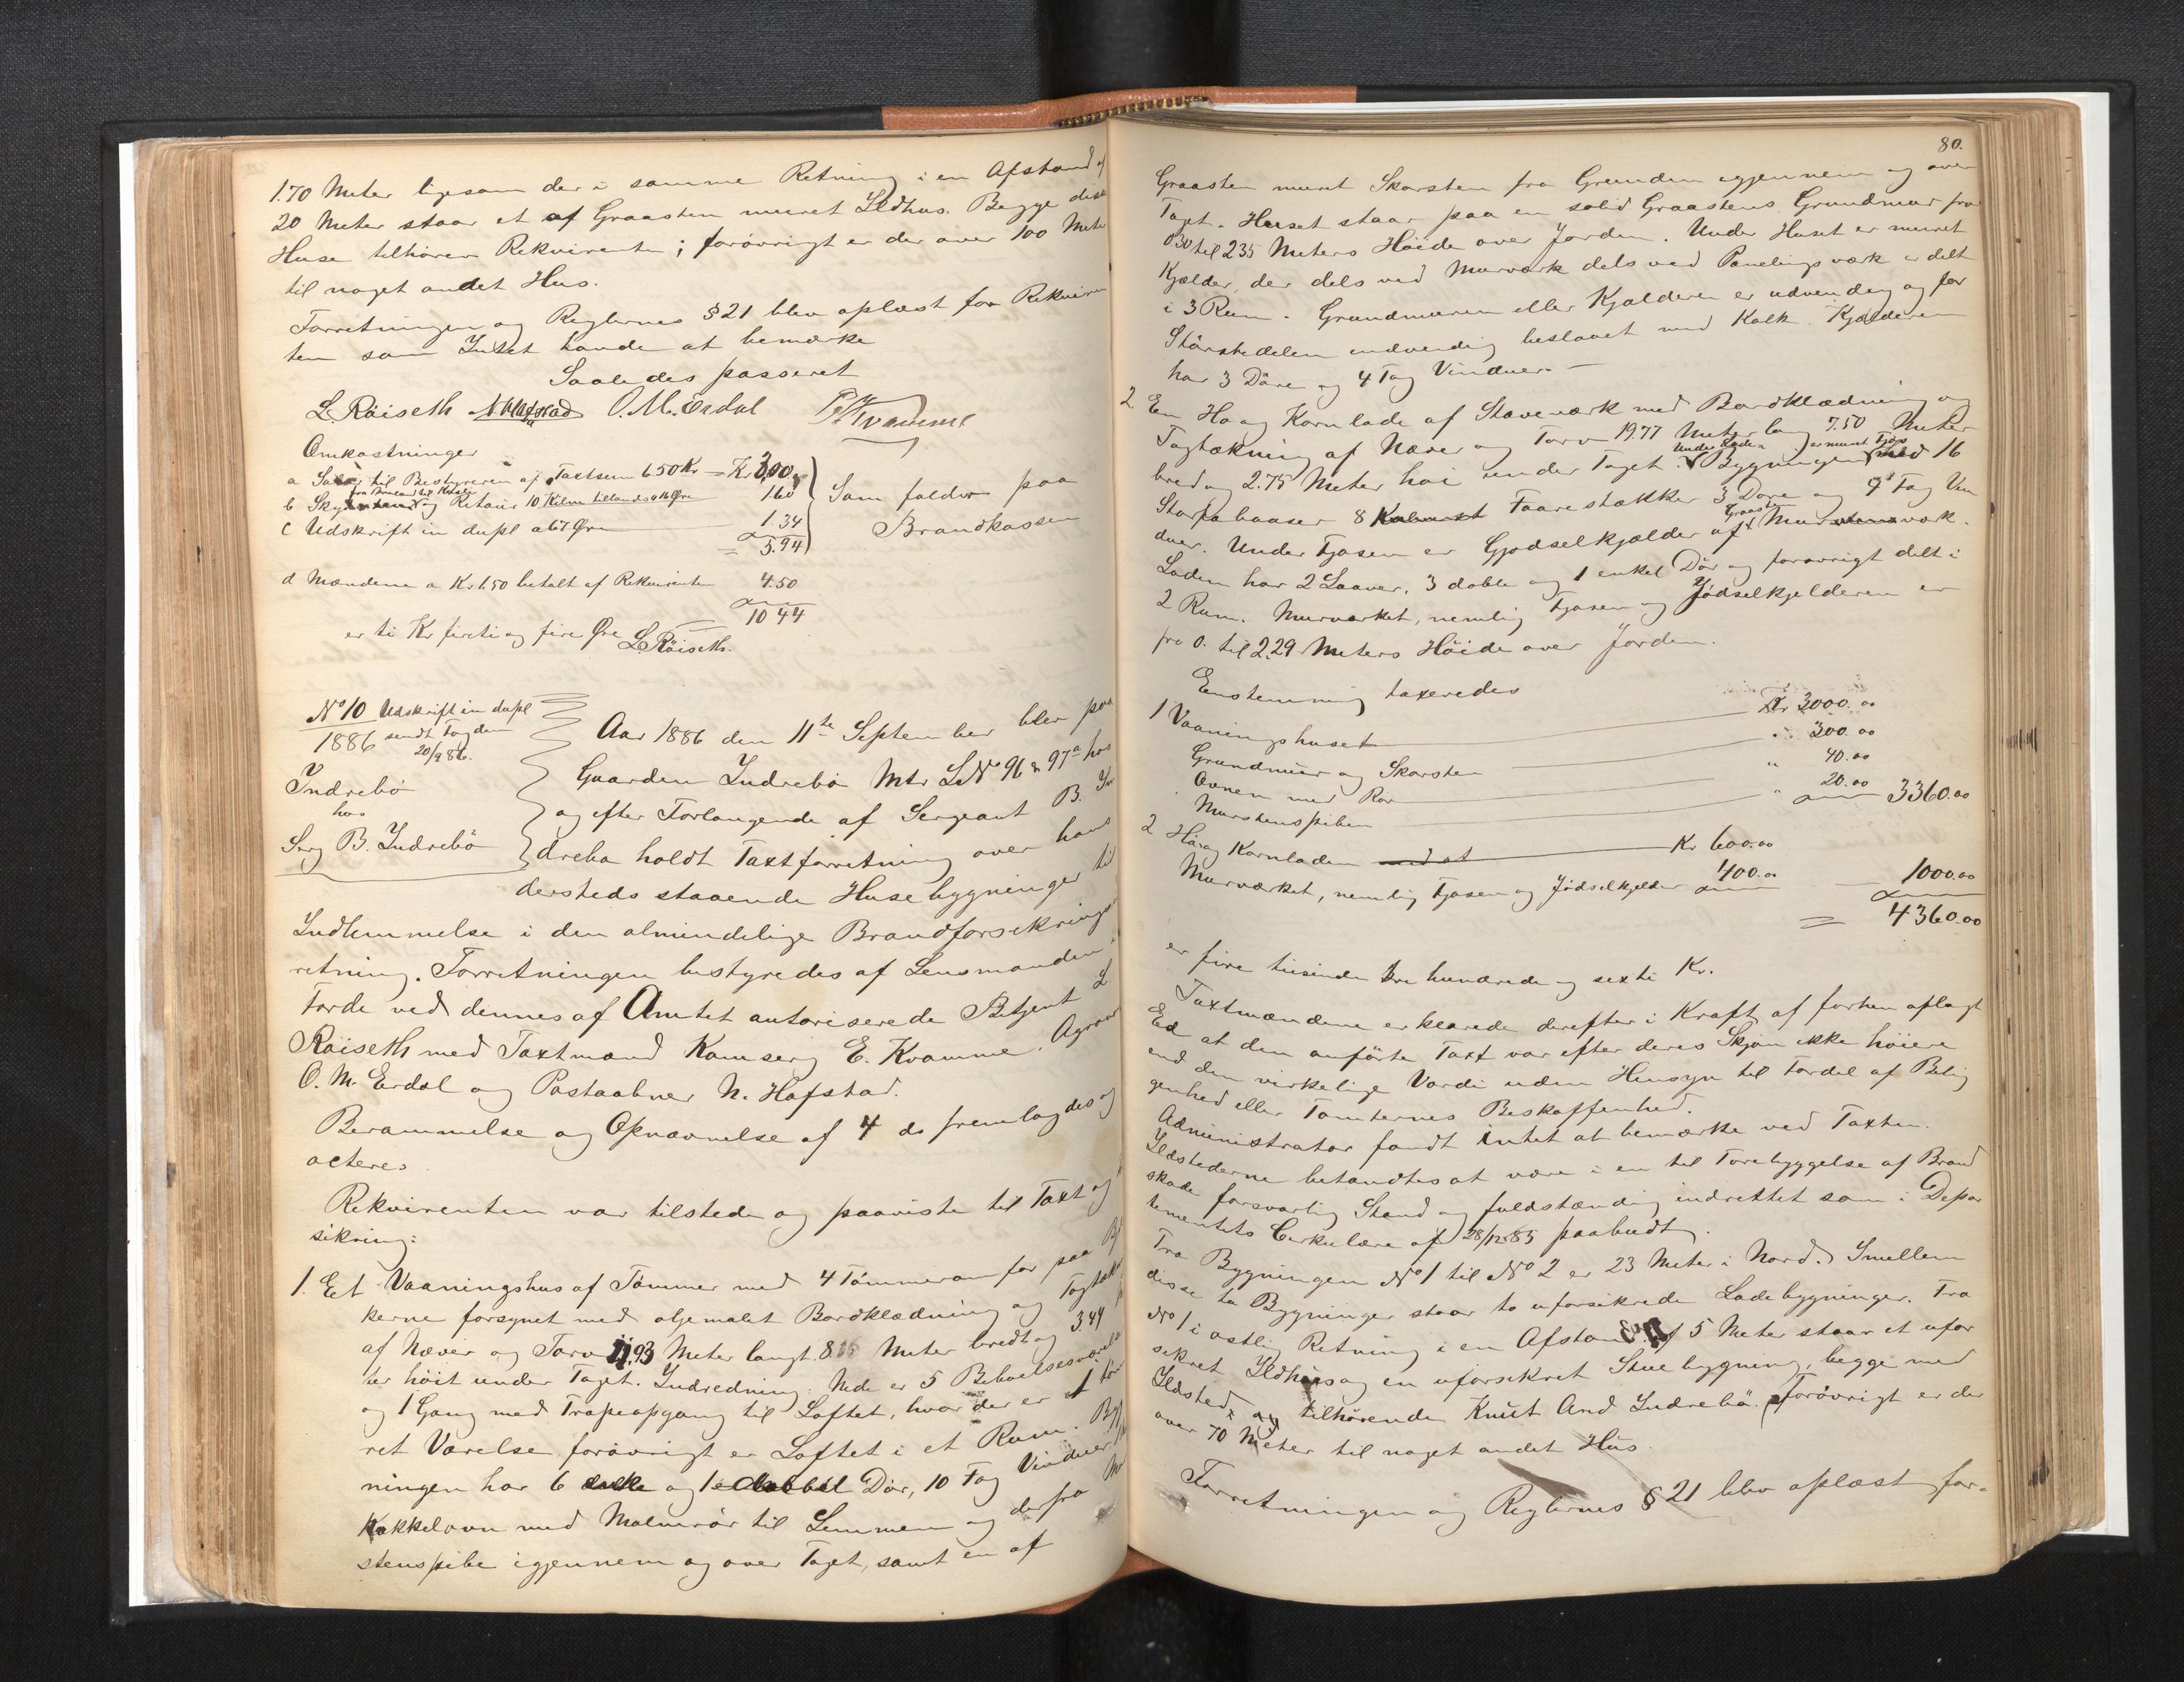 1.70 Meter ligesom der i samme Retning i en Afstand af
20 Meter staar et af Graasten muret Ildhus. Begge disse
Huse tilhører Rekvirenten; forøvrigt er der over 100 Meter
til noget andet Hus.
Forretningen og Reglernes § 21 blev oplæst for Rekviren
ten som Intet havde at bemærke
Saaledes passeret
L. Röiseth N Hafstad O. M. Erdal P. E. Kvamme
Omkostninger
a Salær til Bestyreren af Taxtsum 650 Kr = Kr 3,00
b Skyds og Retour 10 Kilm tillands a 16 Øre 1.60
c Udskrift in dupl a 67 Øre 1.34
= 5.94
Som falder paa
Brandkassen
d Mændene a Kr 1.50 betalt af Rekvirenten 4.50
= 10 44
er ti Kr firti og fire Øre L. Röiseth.
No 10 Udskrift in dupl
1886 sendt Fogden
20/9 86.
Indrebö
hos
Serg B. Indrebö
Aar 1886 den 11te September blev paa
Gaarden Indrebö Mtr LNo 96 & 97a hos
og efter Forlangende af Sergeant B. In
drebø holdt Taxtforretning over hans
dersteds staaende Husebygninger til
Indlemmelse i den almindelige Brandforsikrings
retning. Forretningen bestyredes af Lensmanden i
Førde ved dennes af Amtet autoriserede Betjent L.
Röiseth med Taxtmænd Kamserg E. Kvamme, Agrono
O. M. Erdal og Postaabner N. Hafstad.
Berammelse og Opnævnelse af 4 ds fremlagdes og
acteres
Rekvirenten var tilstede og paaviste til Taxt og
sikring:
1. Et Vaaningshus af Tømmer med 4 Tømmeromfar paa B
kerne forsynet med oljemalet Bordklædning og Tagtækn
af Næver og Torv 11.93 Meter langt, 8 Meter bredt og 3.44
ter høit under Taget. Indredning: Nede er 5 Beboelsesværel
og 1 Gang med Trapeopgang til Loftet, hvor der er 1
ret Værelse forøvrigt er Loftet i et Rum. Byg
ningen har 6 enkle og 1 dobbel Dør, 10 Fag Vinduer,
Kakkelovn med Malmrør til Lemmen og derfra M
stenspibe igjennem og over Taget, samt en af
80.
Graasten muret Skorsten fra Grunden igjennem og over
Taget. Huset staar paa en solid Graastens Grundmur fra
0.30 til 2.35 Meters Høide over Jorden. Under Huset er muret
Kjælder, der dels ved Murværk dels ved Panelingsværk er delt
i 3 Rum. Grundmuren eller Kjælderen er udvendig og for
Størstedelen indvendig beslaaet med Kalk. Kjælderen
har 3 Døre og 4 Fag Vinduer. —
2. En Hø og Kornlade af Staveværk med Bordklædning og
Tagtækning af Næver og Torv 19.77 Meter lang 7.50 Meter
bred og 2.75 Meter høi under Taget. Under Laden er muret Fjøs Bygningen med 16
Storfebaaser 8 Faarestækker 3 Døre og 9 Fag Vin
duer. Under Fjøsen er Gjødselkjælder af Graasten Murværk.
Laden har 2 Laaver, 3 doble og 1 enkel Dør og forøvrigt delt i
2 Rum. Murværket, nemlig Fjøsen og Jødselkjelderen er
fra 0. til 2.29 Meters Høide over Jorden.
Enstemmig taxeredes
1 Vaaningshuset Kr 3000.00
Grundmur og Skorsten " 300.00
Ovnen med Rør " 40.00
Murstenspiben " 20.00 3360.00
2 Høog Kornladen med at Kr 600.00
Murværket, nemlig Fjøsen og Jødselkjelder 400.00 1000.00
= 4360.00
er fire tusinde tre hundrede og sexti Kr.
Taxtmændene erklærede derefter i Kraft af forhen aflagt
Ed at den anførte Taxt var efter deres Skjøn ikke høiere
end den virkelige Værdi uden Hensyn til Fordel af Belig
genhed eller Tomternes Beskaffenhed.
Administrator fandt Intet at bemærke ved Taxten.
Ildstederne befandtes at være i en til Forebyggelse af Brand
skade forsvarlig Stand og fuldstændig indrettet som i Depar
tementets Cirkulære af 28/12 85 paabudt.
Fra Bygningen No 1 til No 2 er 23 Meter i Nord. Imellem
disse to Bygninger staar to uforsikrede Ladebygninger. Fra
No 1 i østlig Retning i en Afstand af 5 Meter staar et ufor
sikret Ildhus og en uforsikret Stuebygning, begge med
Ildsted og tilhørende Knut And Indrebö. Forövrigt er der
over 70 Meter til noget andet Hus.
Forretningen og Reglernes § 21 blev oplæst for-